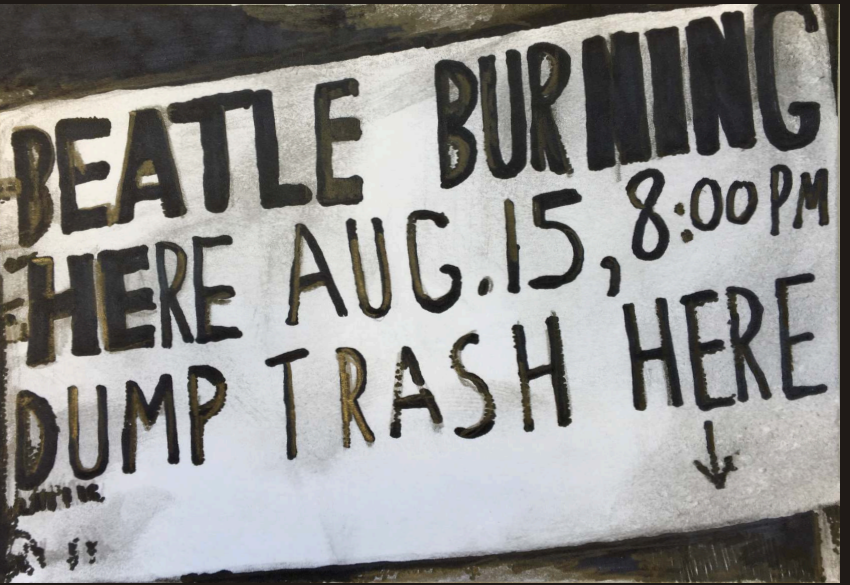 BEATLE BURNING
HERE AUG. 15, 8:00 PM
DUMP TRASH HERE